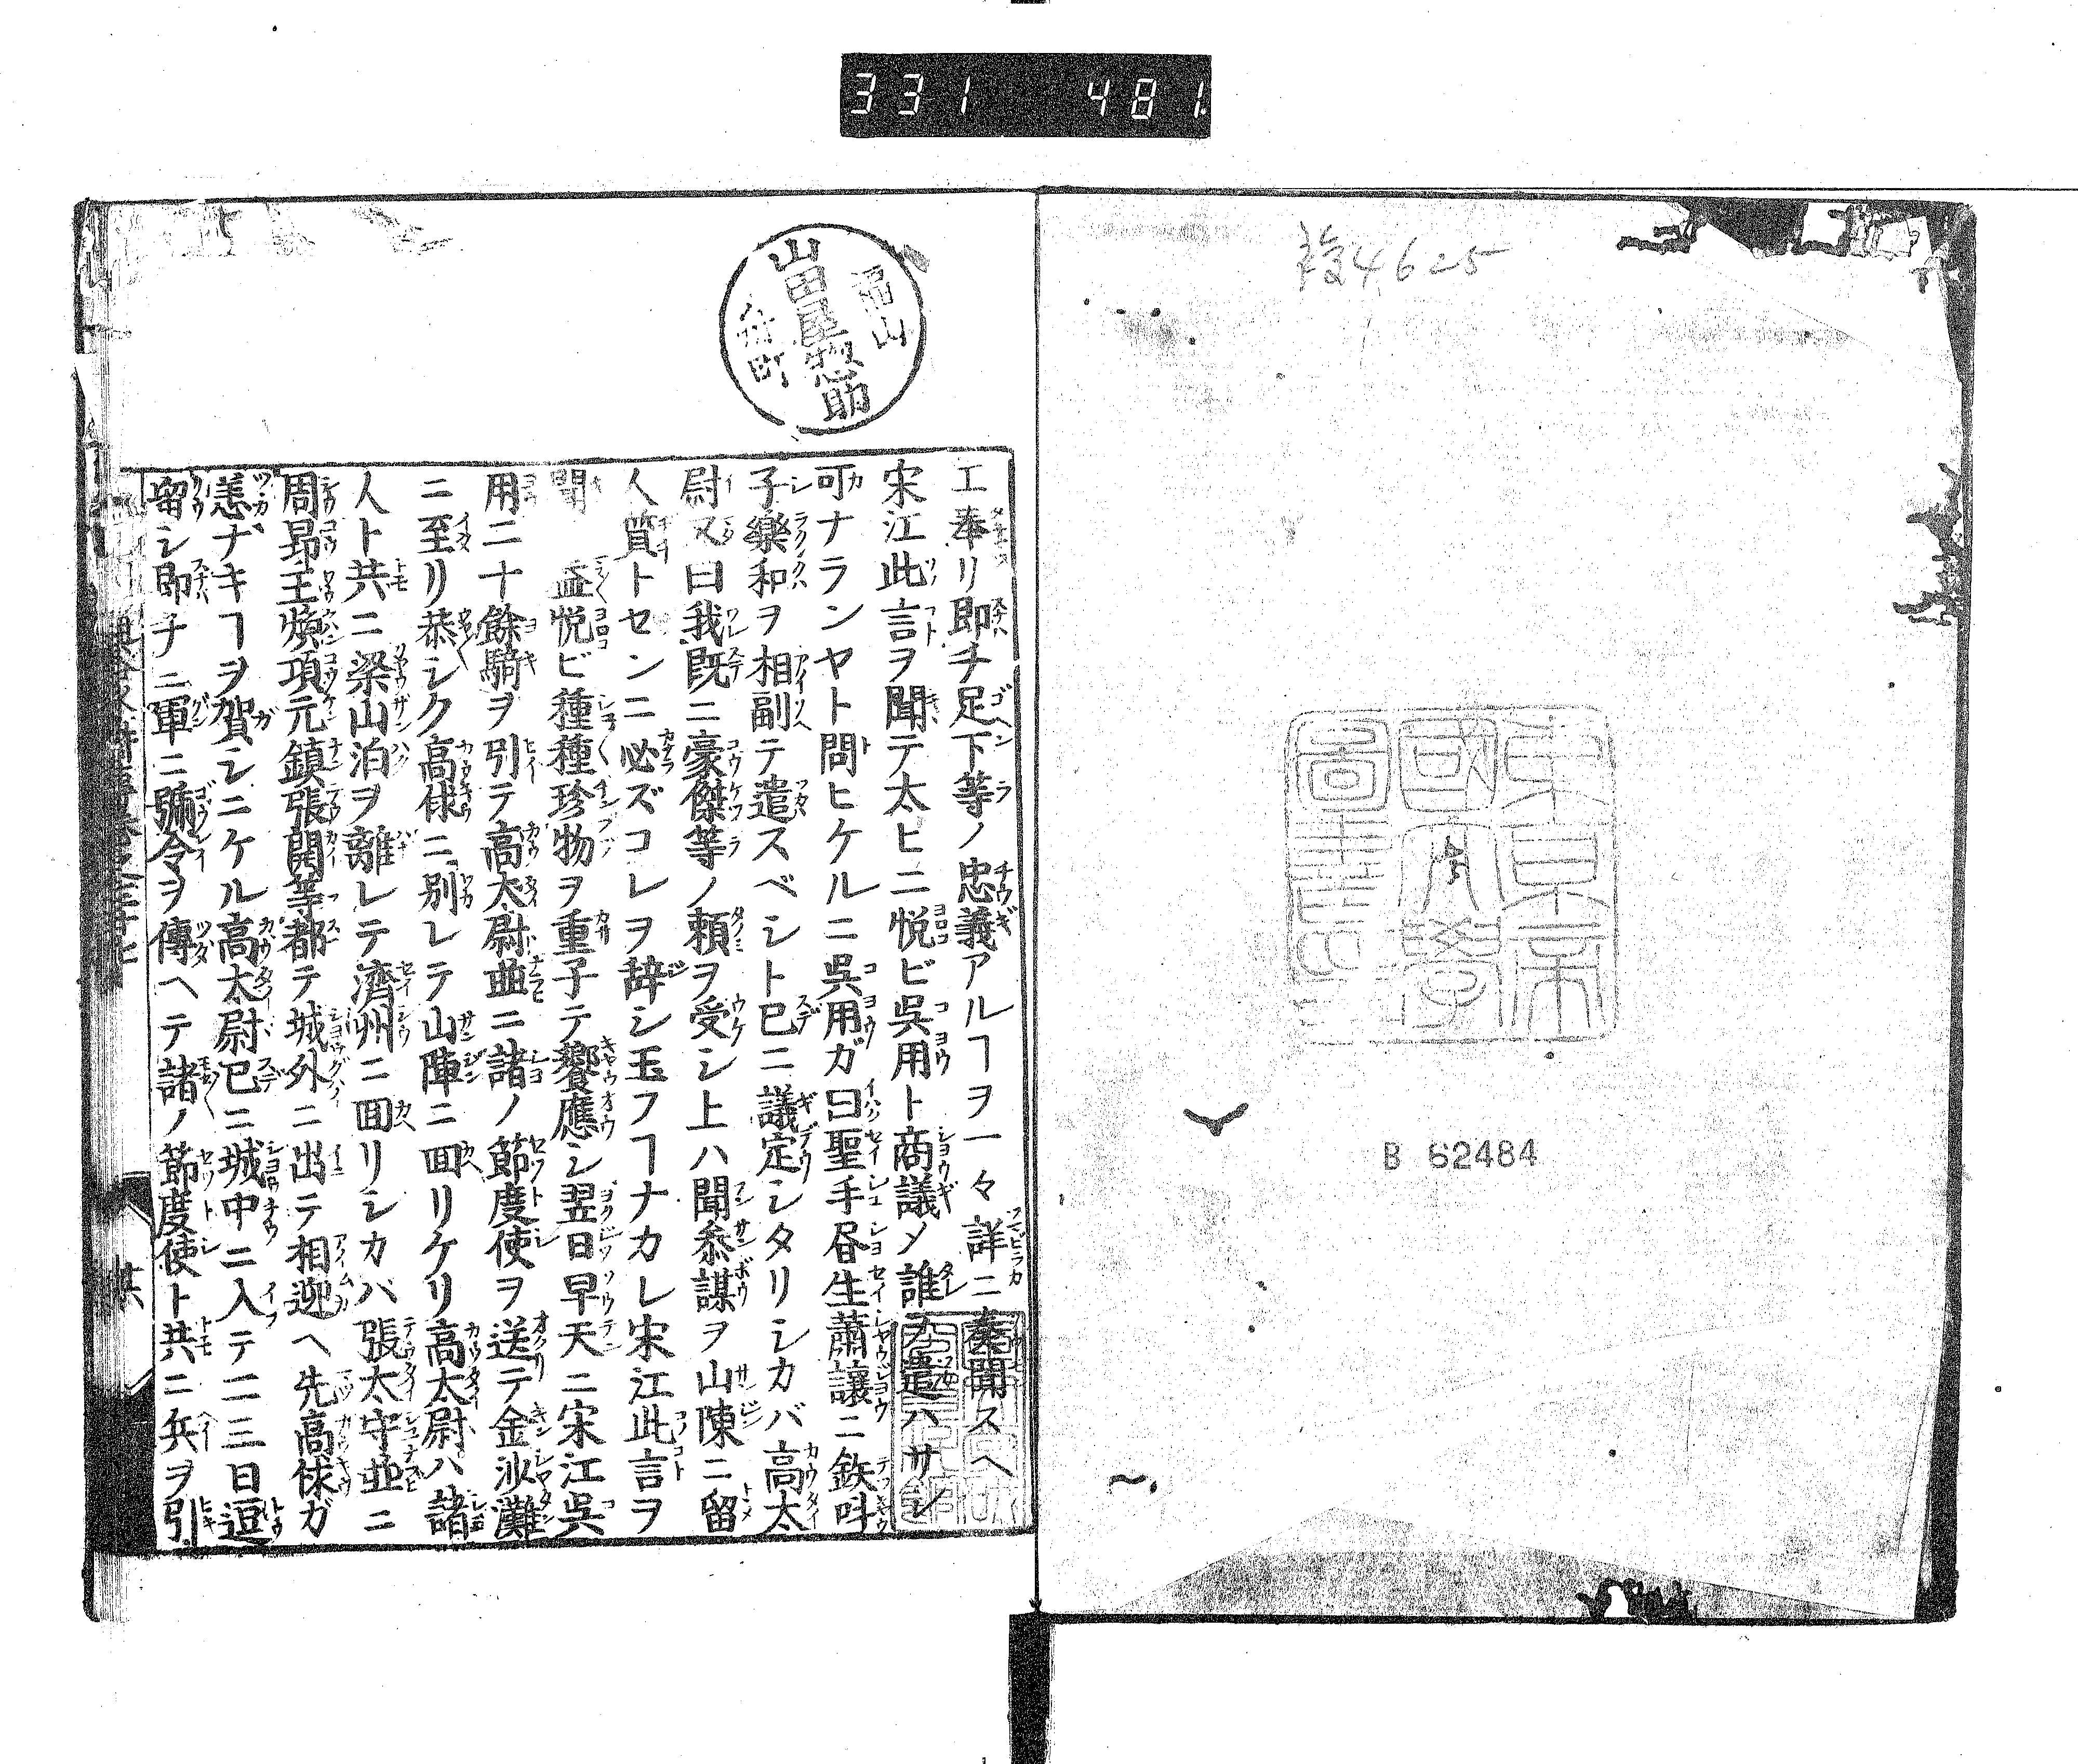 331 481
4625
東京帝
國大學
圖書印
B 62484
福山
山田屋惣助
町
エ奉リ即チ足下等ノ忠義アルヿヲ一々詳ニ奏聞スヘ
宋江此言ヲ聞テ太ヒニ悦ビ呉用ト商議メ誰ヲ遣ハサン
可ナランヤト問ヒケルニ呉用ガ曰聖手昼生蕭讓ニ鉄呌
子樂和ヲ相副テ遣スベシト已ニ議定シタリシカバ高太
尉又曰我既ニ豪傑等ノ頼ヲ受シ上ハ聞糸謀ヲ山陳ニ留
人質トセンニ必ズコレヲ辞シ玉フヿナカレ宋江此言ヲ
聞 益悦ビ種種珍物ヲ重子テ饗應シ翌日早天ニ宋江呉
用二十餘騎ヲ引テ高太尉並ニ諸ノ節度使ヲ送テ金沙灘
ニ至リ恭シク高俅ニ別レテ山陣ニ回リケリ高太尉ハ諸
人ト共ニ梁山泊ヲ離レテ濟州ニ回リシカバ張太守並ニ
周昂王煥項元鎮張開等都テ城外ニ出テ相迎ヘ先高俅ガ
恙ナキヿヲ賀シニケル高太尉已ニ城中ニ入テ二三日逗
留シ即チ三軍ニ號令ヲ傳ヘテ諸ノ節度使ト共ニ兵ヲ引